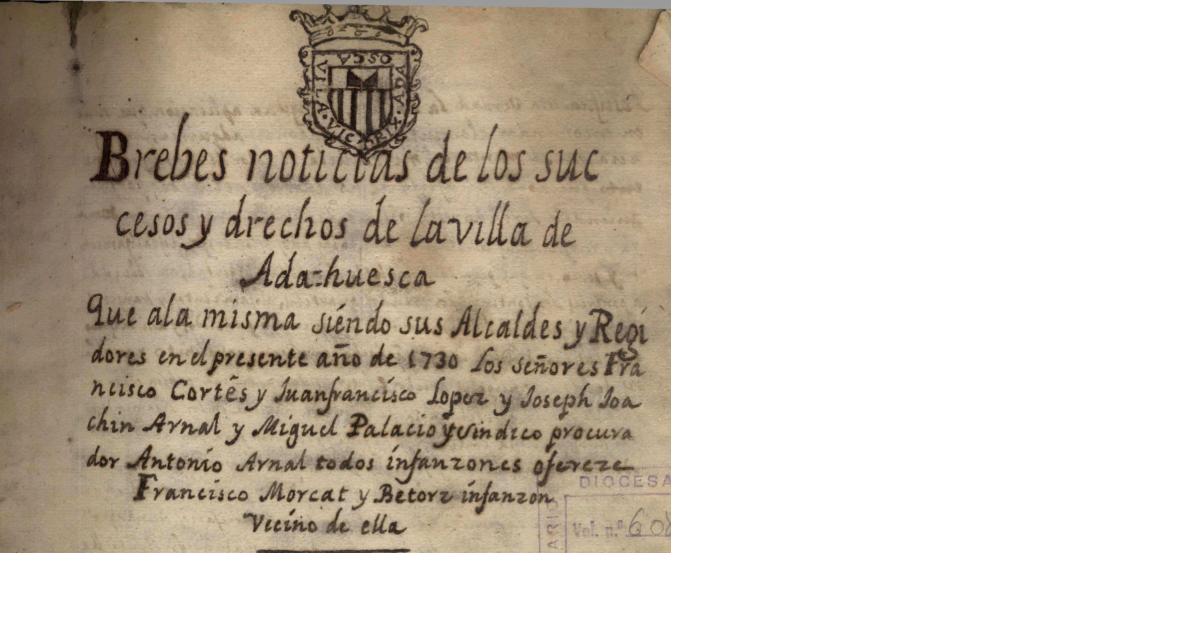 VILLA VICTRIX ADA OSCA
Brebes noticias de los suc
cesos y drechos de la villa de
Ada-huesca
Que ala misma siendo sus Alcaldes y Regi
dores en el presente año de 1730 los señores Fra
ncisco Cortès y Juanfrancisco Lopez y Joseph Joa
chin Arnal y Miguel Palacio y sindico procura
dor Antonio Arnal todos infanzones ofereze
Francisco Morcat y Betorz infanzon
Vecino de ella
DIOCESA
ARIO
Vol. n.º 60